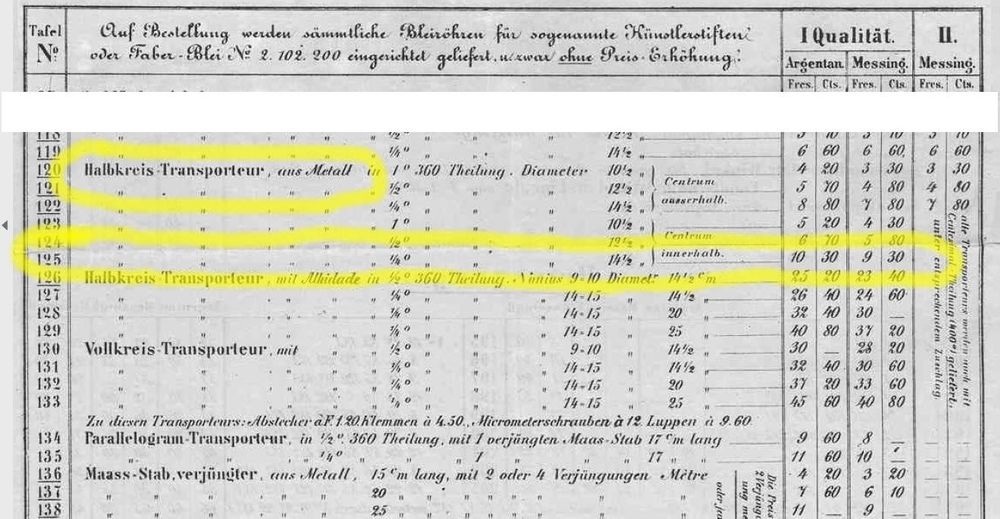 Tafel Nº Auf Bestellung werden sämmtliche Bleiröhren für sogenannte Künstlerstiften I Qualität. II.
oder Faber-Blei Nº 2. 102. 200 eingerichtet geliefert, u. zwar ohne Preis-Erhöhung! Argentan. Messing. Messing.
Frcs. Cts. Frcs. Cts. Frcs. Cts.
118 " " " " ½° " " " 12½ " 10 10 10
119 " " " " ¼° " " " 14½ " 6 60 6 60 6 60
120 Halbkreis-Transporteur, aus Metall in 1° 360 Theilung. Diameter 10½ " 4 20 3 30 3 30
121 " " " " ½° " " " 12½ " Centrum 5 70 4 80 4 80
122 " " " " ¼° " " " 14½ " ausserhalb. 8 80 7 80 7 80
123 " " " " 1° " " " 10½ " 5 20 4 30
124 " " " " ½° " " " 12½ " Centrum 6 70 5 80
125 " " " " ¼° " " " 14½ " innerhalb. 10 30 9 30
126 Halbkreis-Transporteur, mit Alhidade in ½° 360 Theilung. Nonius 9-10 Diamet. 14½ cm 25 20 23 40
127 " " " " ¼° " " 14-15 " 14½ " 26 40 24 60
128 " " " " ¼° " " 14-15 " 20 " 32 40 30 —
129 " " " " ¼° " " 14-15 " 25 " 40 80 37 20
130 Vollkreis-Transporteur, mit " ½° " " 9-10 " 14½ " 30 — 28 20
131 " " " " ¼° " " 14-15 " 14½ " 32 40 30 60
132 " " " " ¼° " " 14-15 " 20 " 37 20 33 60
133 " " " " ¼° " " 14-15 " 25 " 45 60 40 80
alle Transporteurs werden auch mit
Centesimal-Theilung (400°) geliefert.
unter entsprechendem Zuschlag
Zu diesen Transporteurs: Abstecher à F. 1.20. Klemmen à 4.50., Micrometerschrauben à 12 Luppen à 9.60
134 Parallelogram-Transporteur, in ½° 360 Theilung, mit 1 verjüngten Maas-Stab 17 cm lang 9 60 8 —
135 " " " ¼° " " " 1 " " 17 " " 11 60 10 "
136 Maass-Stab, verjüngter, aus Metall, 15 cm lang, mit 2 oder 4 Verjüngungen Mètre 4 20 3 20
137 " " " " 20 " " " " " " 7 60 6 10
138 " " " " 25 " " " " " " 11 — 9 —
Die Preis